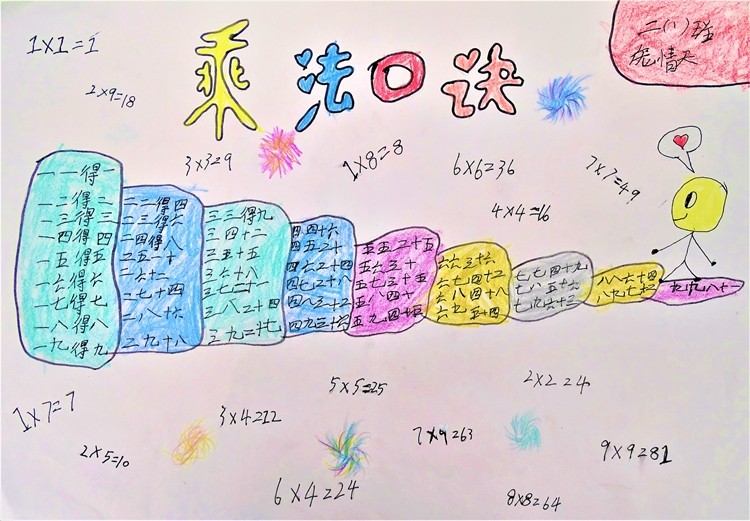 1×1=1
乘法口诀
二(1)班
2×9=18
3×3=9
1×8=8
6×6=36
7×7=49
4×4=16
一一得一
一二得二
一三得三
一四得四
一五得五
一六得六
一七得七
一八得八
一九得九
二二得四
二三得六
二四得八
二五二十
二六十二
二七十四
二八十六
二九十八
三三得九
三四十二
三五十五
三六十八
三七二十一
三八二十四
三九二十七
四四十六
四五二十
四六二十四
四七二十八
四八三十二
四九三十六
五五二十五
五六三十
五七三十五
五八四十
五九四十五
六六三十六
六七四十二
六八四十八
六九五十四
七七四十九
七八五十六
七九六十三
八八六十四
八九七十二
九九八十一
1×7=7
5×5=25
2×2=4
3×4=12
2×5=10
7×9=63
9×9=81
6×4=24
8×8=64